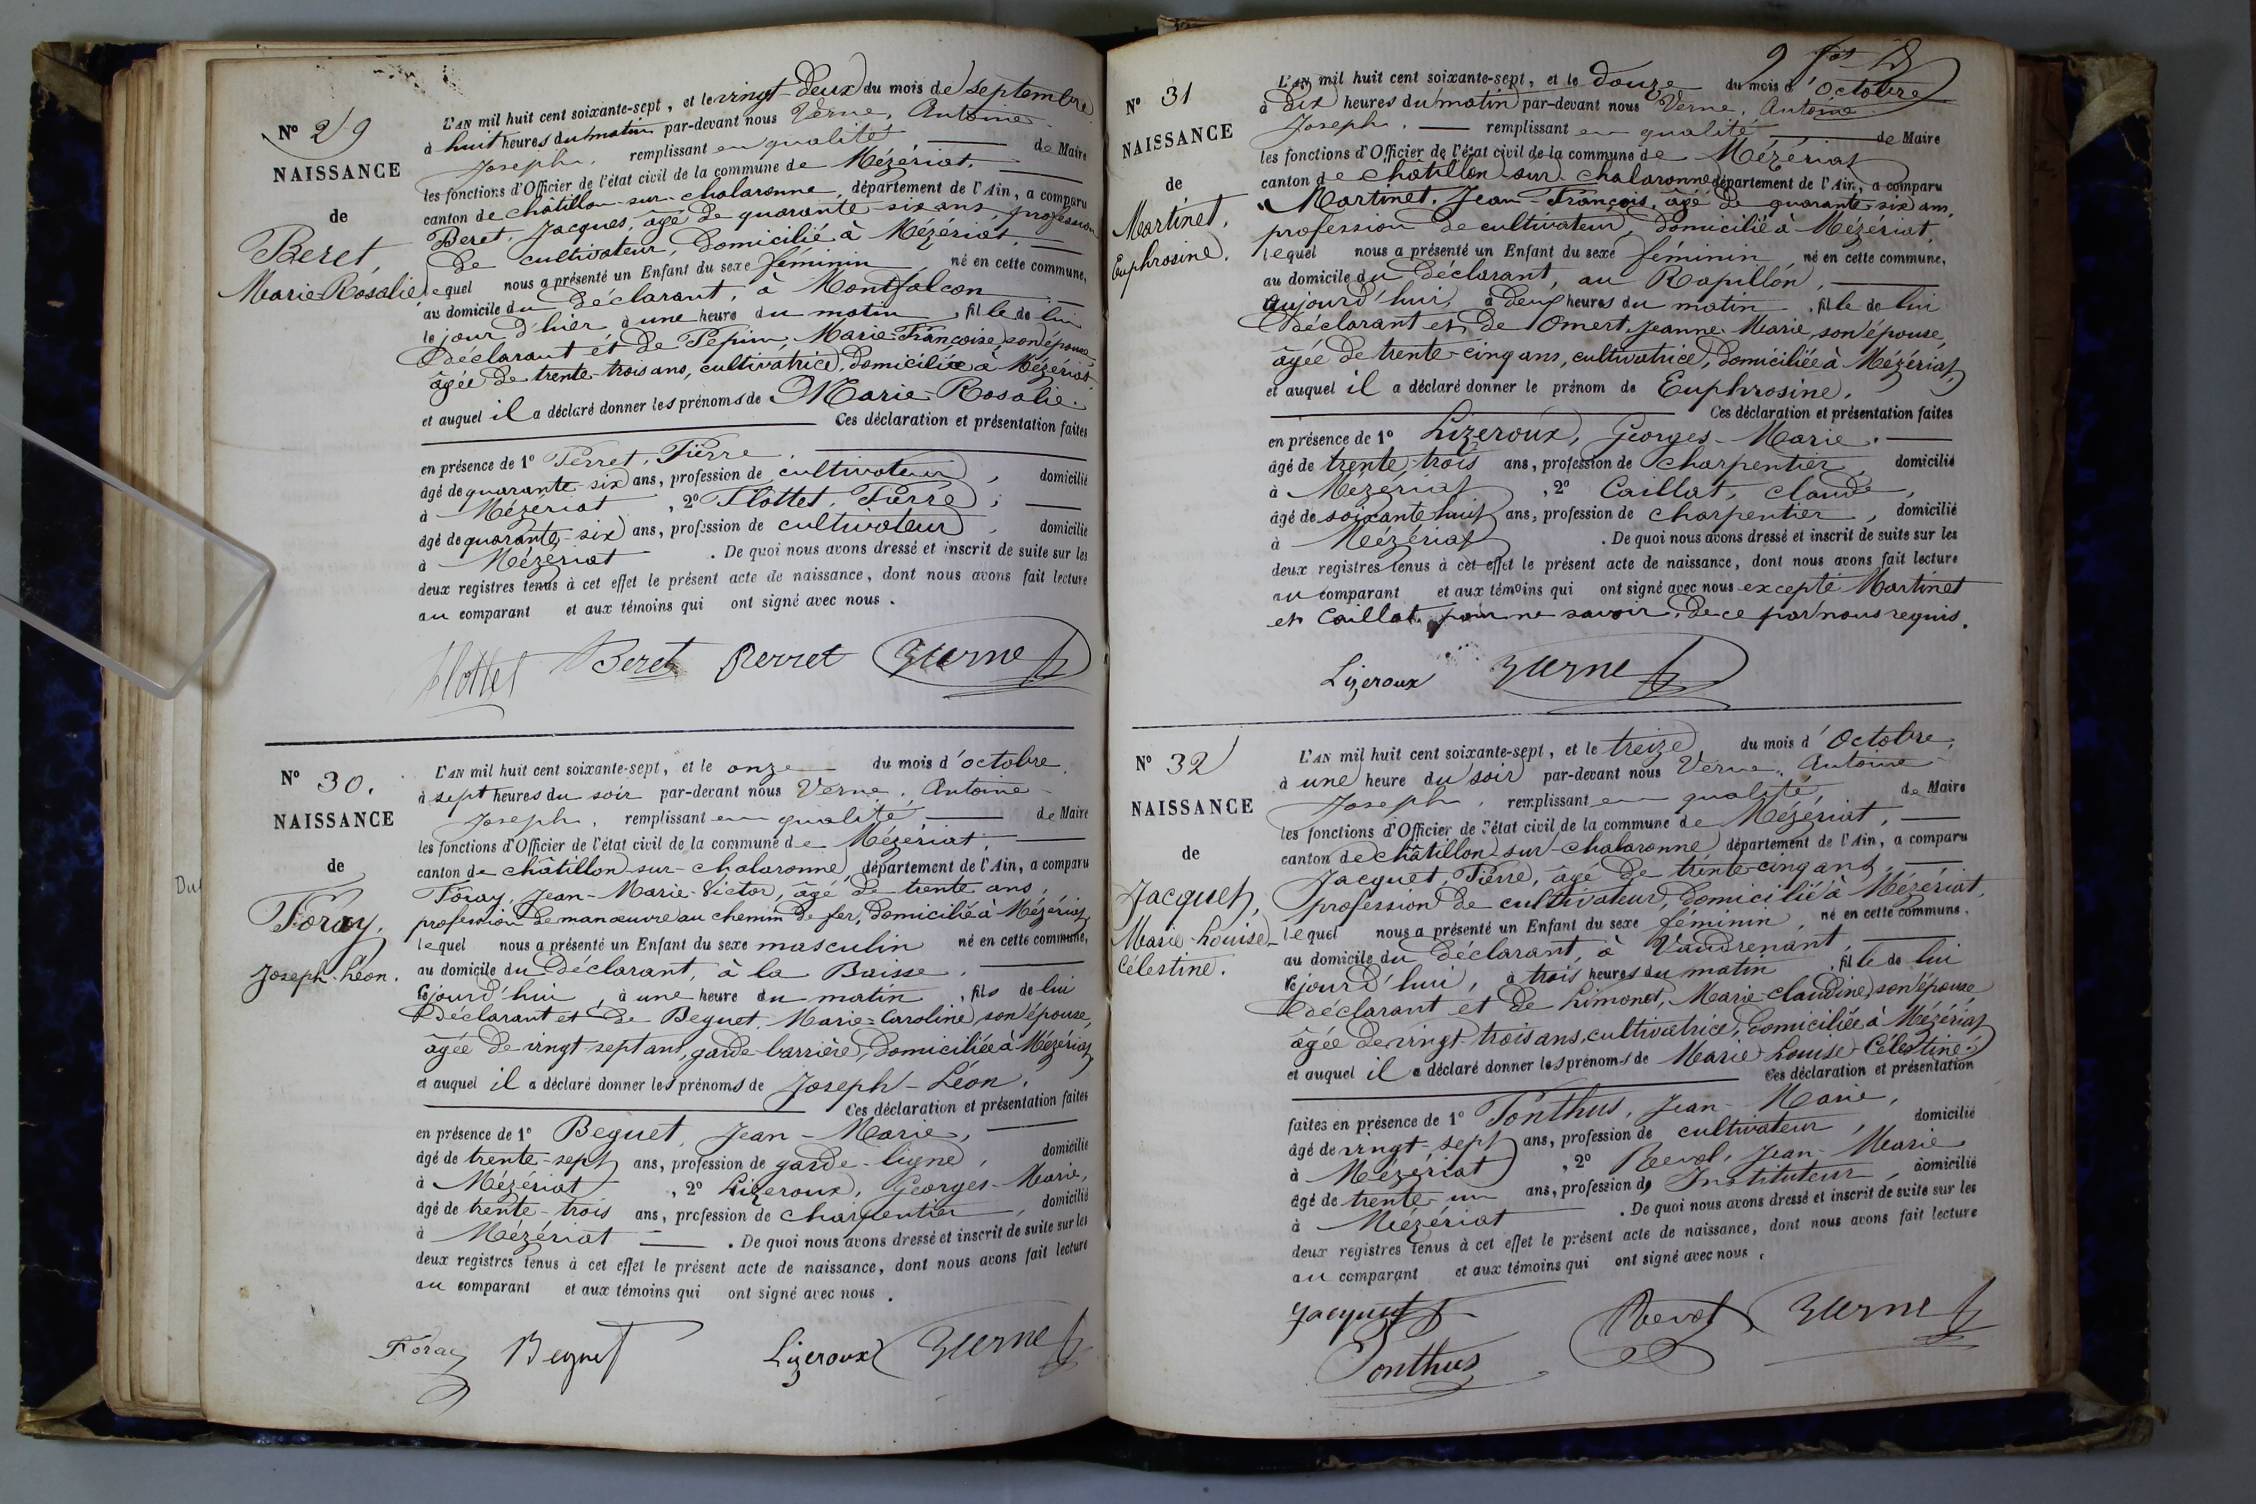 N° 29
NAISSANCE
de
Beret,
Marie-Rosalie,
L'AN mil huit cent soixante-sept, et le vingt-deux du mois de septembre
à huit heures du matin par-devant nous Verne, Antoine-
Joseph, remplissant en qualité de Maire
les fonctions d'Officier de l'état civil de la commune de Mézériat,
canton de châtillon-sur-chalaronne, département de l'Ain, a comparu
Beret, Jacques, âgé de quarante-six ans, profession
de cultivateur, domicilié à Mézériat,
lequel nous a présenté un Enfant du sexe féminin né en cette commune,
au domicile du déclarant, à Montfalcon
le jour d'hier à une heure du matin, fille de lui
déclarant et de Pépin, Marie-Françoise, son épouse,
âgée de trente-trois ans, cultivatrice, domiciliée à Mézériat
et auquel il a déclaré donner les prénoms de Marie-Rosalie.
Ces déclaration et présentation faites
en présence de 1° Perret, Pierre,
âgé de quarante-six ans, profession de cultivateur, domicilié
à Mézériat, 2° Flottet, Pierre,
âgé de quarante-six ans, profession de cultivateur, domicilié
à Mézériat. De quoi nous avons dressé et inscrit de suite sur les
deux registres tenus à cet effet le présent acte de naissance, dont nous avons fait lecture
au comparant et aux témoins qui ont signé avec nous.
flottet Beret Perret Verne
N° 30.
NAISSANCE
de
Foray,
Joseph-Léon.
L'AN mil huit cent soixante-sept, et le onze du mois d'octobre,
à sept heures du soir par-devant nous Verne, Antoine-
Joseph, remplissant en qualité de Maire
les fonctions d'Officier de l'état civil de la commune de Mézériat,
canton de châtillon-sur-chalaronne, département de l'Ain, a comparu
Foray, Jean-Marie-Victor, âgé de trente ans,
profession de manœuvre au chemin de fer, domicilié à Mézériat,
lequel nous a présenté un Enfant du sexe masculin né en cette commune,
au domicile du déclarant, à la Baisse,
cejourd'hui, à une heure du matin, fils de lui
déclarant et de Beguet, Marie-Caroline, son épouse,
âgée de vingt-sept ans, garde-barrière, domiciliée à Mézériat,
et auquel il a déclaré donner les prénoms de Joseph-Léon.
Ces déclaration et présentation faites
en présence de 1° Beguet, Jean-Marie,
âgé de trente-sept ans, profession de garde-ligne, domicilié
à Mézériat, 2° Lizeroux, Georges-Marie,
âgé de trente-trois ans, profession de charpentier, domicilié
à Mézériat. De quoi nous avons dressé et inscrit de suite sur les
deux registres tenus à cet effet le présent acte de naissance, dont nous avons fait lecture
au comparant et aux témoins qui ont signé avec nous.
Foray Beguet Lizeroux Verne
N° 31
NAISSANCE
de
Martinet,
Euphrosine.
L'AN mil huit cent soixante-sept, et le douze du mois d'octobre
à dix heures du matin par-devant nous Verne, Antoine
Joseph, remplissant en qualité de Maire
les fonctions d'Officier de l'état civil de la commune de Mézériat
canton de châtillon-sur-chalaronne département de l'Ain, a comparu
Martinet, Jean-François, âgé de quarante-six ans,
profession de cultivateur, domicilié à Mézériat,
lequel nous a présenté un Enfant du sexe féminin, né en cette commune,
au domicile du déclarant, au Rapillon,
aujourd'hui, à deux heures du matin, fille de lui
déclarant et de Omert, Jeanne-Marie, son épouse,
âgée de trente-cinq ans, cultivatrice, domiciliée à Mézériat,
et auquel il a déclaré donner le prénom de Euphrosine.
Ces déclaration et présentation faites
en présence de 1° Lizeroux, Georges-Marie.
âgé de trente-trois ans, profession de charpentier, domicilié
à Mézériat, 2° Caillat, claude,
âgé de soixante huit ans, profession de charpentier, domicilié
à Mézériat. De quoi nous avons dressé et inscrit de suite sur les
deux registres tenus à cet effet le présent acte de naissance, dont nous avons fait lecture
au comparant et aux témoins qui ont signé avec nous excepté Martinet
et Caillat, pour ne savoir, de ce par nous requis.
Lizeroux Verne
N° 32
NAISSANCE
de
Jacquet,
Marie-Louise-
Célestine.
L'AN mil huit cent soixante-sept, et le treize, du mois d'Octobre,
à une heure du soir par-devant nous Verne, Antoine-
Joseph, remplissant en qualité de Maire
les fonctions d'Officier de l'état civil de la commune de Mézériat,
canton de châtillon-sur-chalaronne département de l'Ain, a comparu
Jacquet, Pierre, âgé de trente-cinq ans,
profession de cultivateur, domicilié à Mézériat,
lequel nous a présenté un Enfant du sexe féminin, né en cette commune,
au domicile du déclarant, à Vaudrenant,
cejourd'hui, à trois heures du matin, fille de lui
déclarant et de Limonet, Marie-claudine, son épouse
âgée de vingt-trois ans, cultivatrice, domiciliée à Mézériat
et auquel il a déclaré donner les prénoms de Marie-Louise-Célestine.
Ces déclaration et présentation
faites en présence de 1° Ponthus, Jean-Marie,
âgé de vingt-sept ans, profession de cultivateur, domicilié
à Mézériat, 2° Revol, Jean-Marie
âgé de trente-un ans, profession de Instituteur, domicilié
à Mézériat. De quoi nous avons dressé et inscrit de suite sur les
deux registres tenus à cet effet le présent acte de naissance, dont nous avons fait lecture
au comparant et aux témoins qui ont signé avec nous.
Jacquet Revol Verne
Ponthus